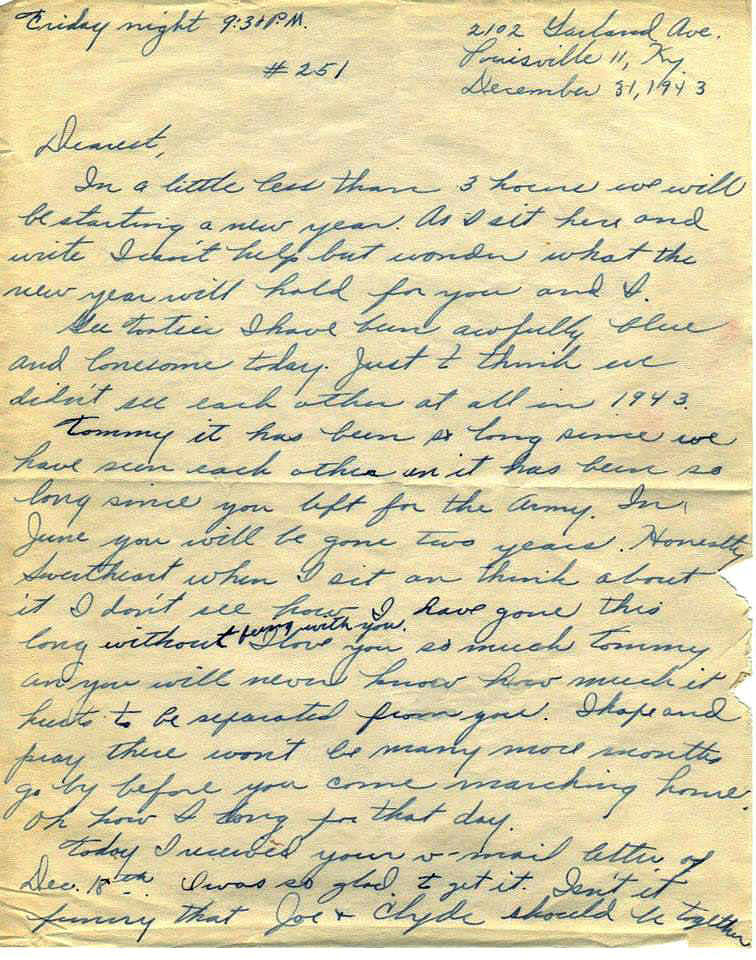 Friday night 9:30 P.M.
2102 Garland Ave.
Louisville 11, Ky
# 251
December 31, 1943
Dearest,
In a little less than 3 hours we will
be starting a new year. As I sit here and
write I can't help but wonder what the
new year will hold for you and I.
Gee tootsie I have been awfully blue
and lonesome today. Just to think we
didn't see each other at all in 1943.
Tommy it has been so long since we
have seen each other an it has been so
long since you left for the Army. In
June you will be gone two years. Honestly
Sweetheart when I sit an think about
it I don't see how I have gone this
long without being with you. I love you so much Tommy
an you will never know how much it
hurts to be separated from you. I hope and
pray there won't be many more months
go by before you come marching home.
Oh how I long for that day.
Today I received your v-mail letter of
Dec. 18th. I was so glad to get it. Isn't it
funny that Joe & Clyde should be together